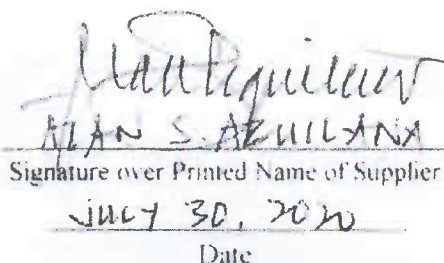 ALAN S. AGUILANA
Signature over Printed Name of Supplier
JULY 30, 2020
Date